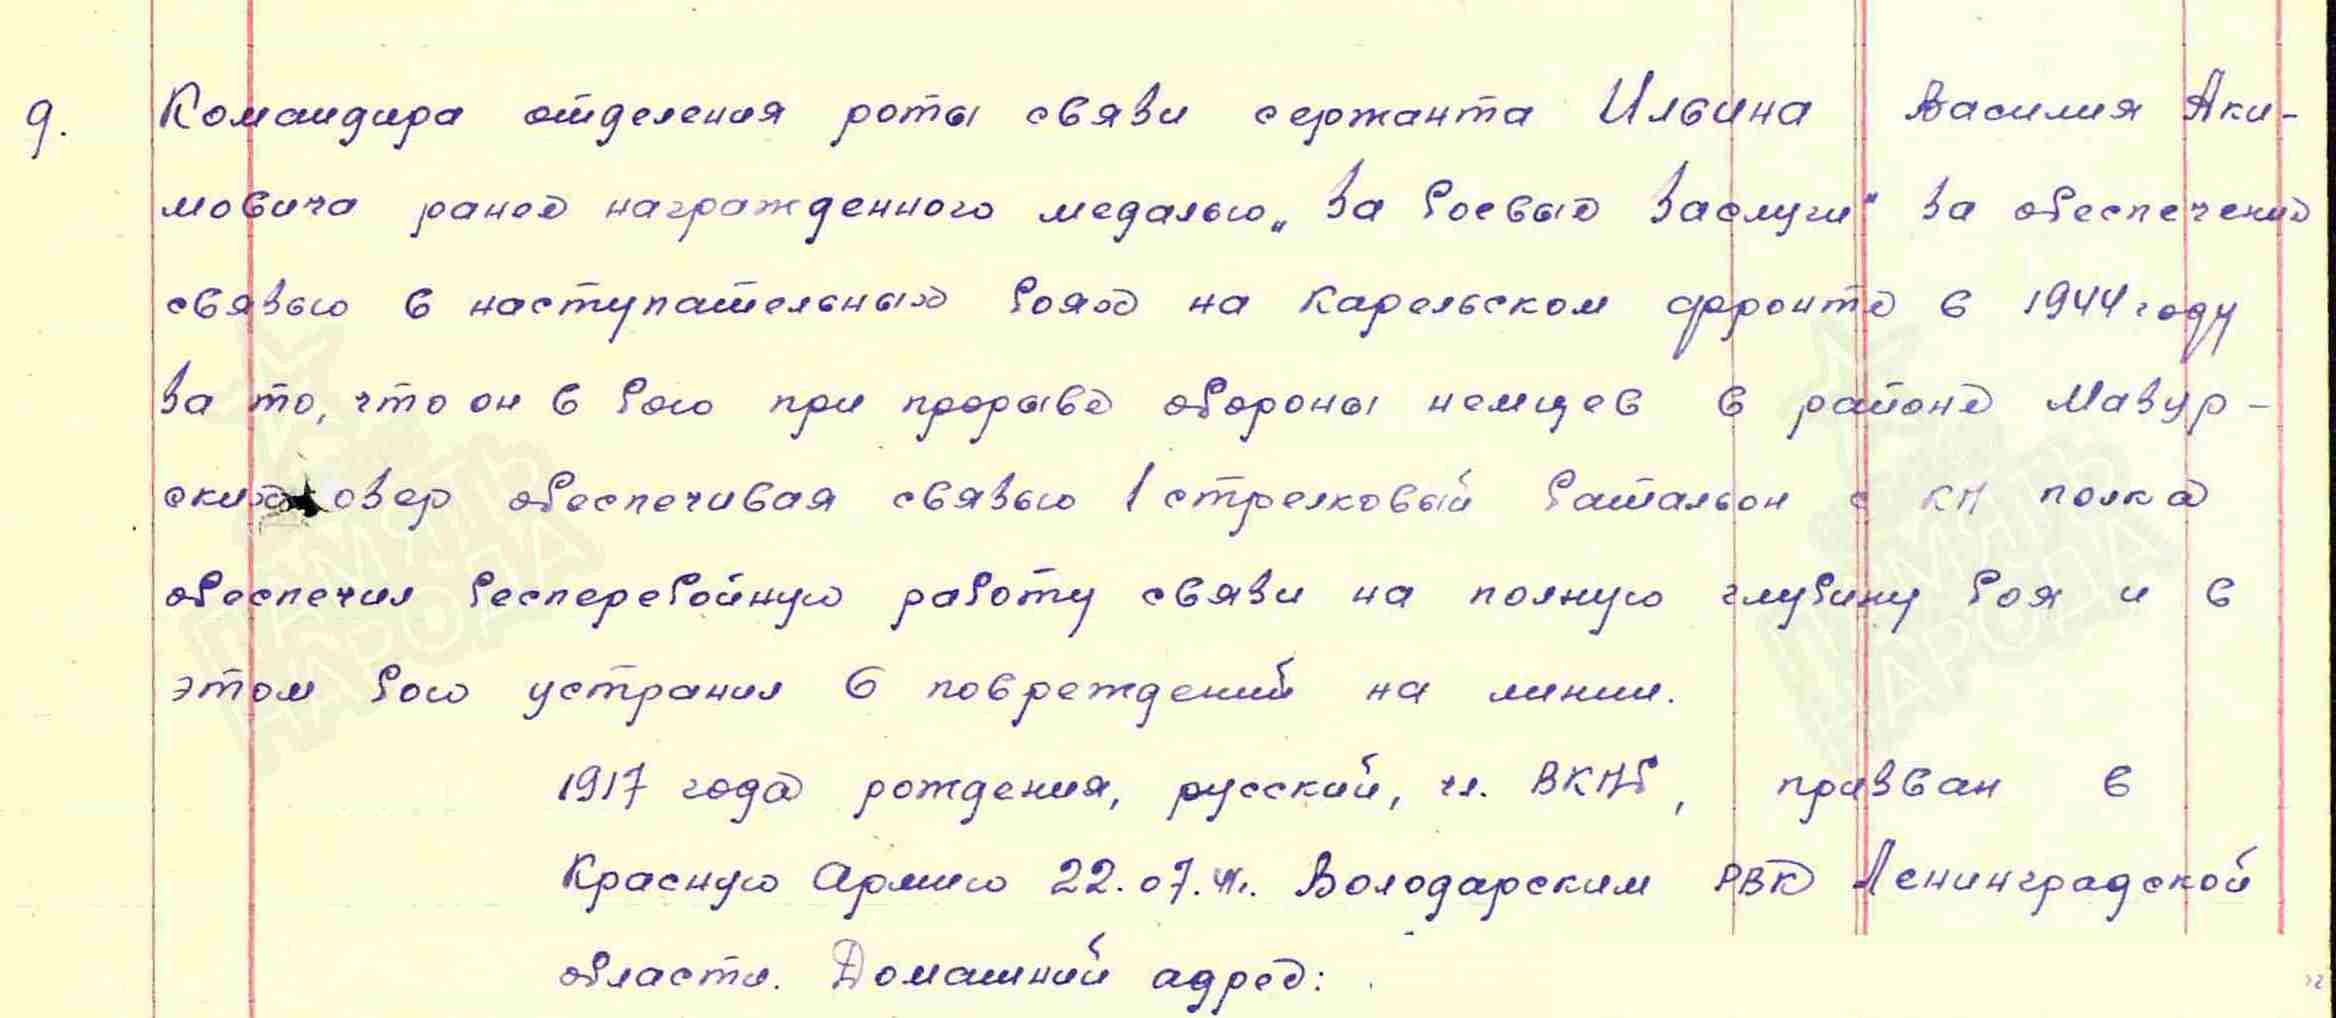 9. Командира отделения роты связи сержанта Ильина Василия Аки-
мовича ранее награжденного медалью „За боевые заслуги" за обеспечение
связью в наступательных боях на Карельском фронте в 1944 году
за то, что он в бою при прорыве обороны немцев в районе Мазур-
ских озер обеспечивая связью 1 стрелковый батальон с КП полка
обеспечил бесперебойную работу связи на полную глубину боя и в
этом бою устранил 6 повреждений на линии.
1917 года рождения, русский, чл. ВКПб, призван в
Красную Армию 22.07.41г. Володарским РВК Ленинградской
области. Домашний адрес:
ПАМЯТЬ НАРОДА
ПАМЯТЬ НАРОДА